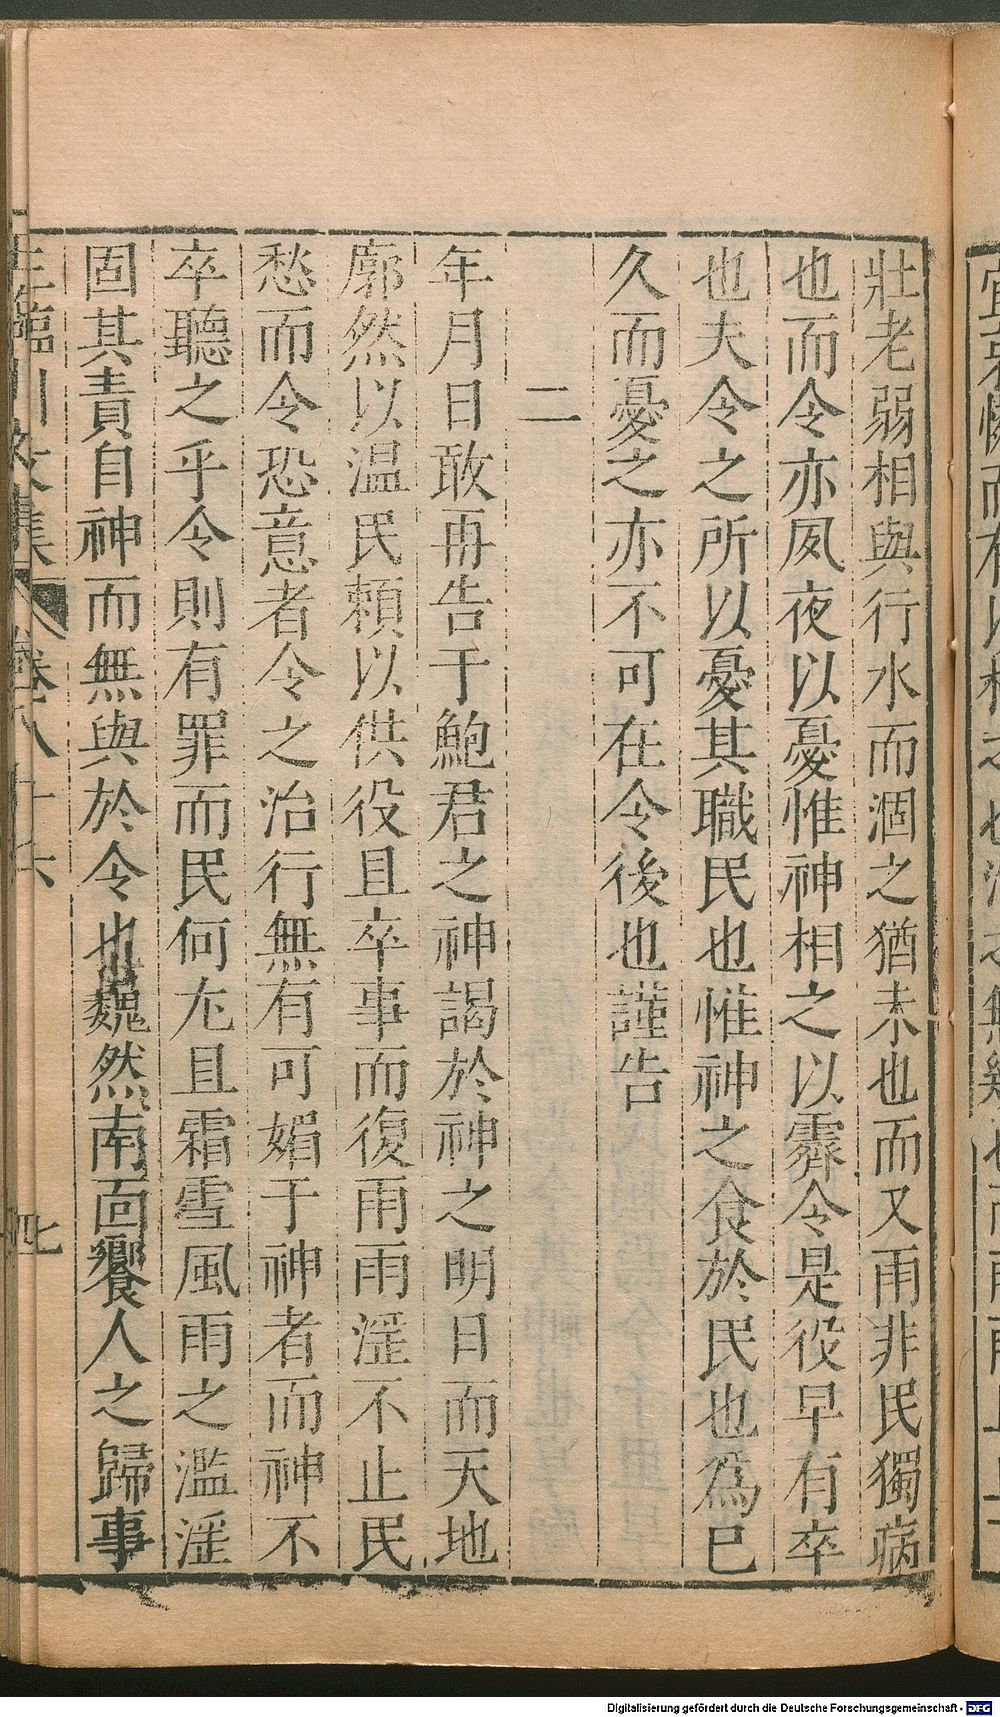 壯老弱相與行水而涸之猶未也而又雨非民獨病
也而令亦夙夜以憂惟神相之以霽令是役早有卒
也夫令之所以憂其職民也惟神之食於民也爲已
久而憂之亦不可在令後也謹告
二
年月日敢再告于鮑君之神謁於神之明日而天地
廓然以温民賴以供役且卒事而復雨雨淫不止民
愁而令恐意者令之治行無有可媚于神者而神不
卒聽之乎令則有罪而民何尤且霜雪風雨之濫淫
固其責自神而無與於令也巍然南面饗人之歸事
王臨川文集 卷八十六
Digitalisierung gefördert durch die Deutsche Forschungsgemeinschaft - DFG